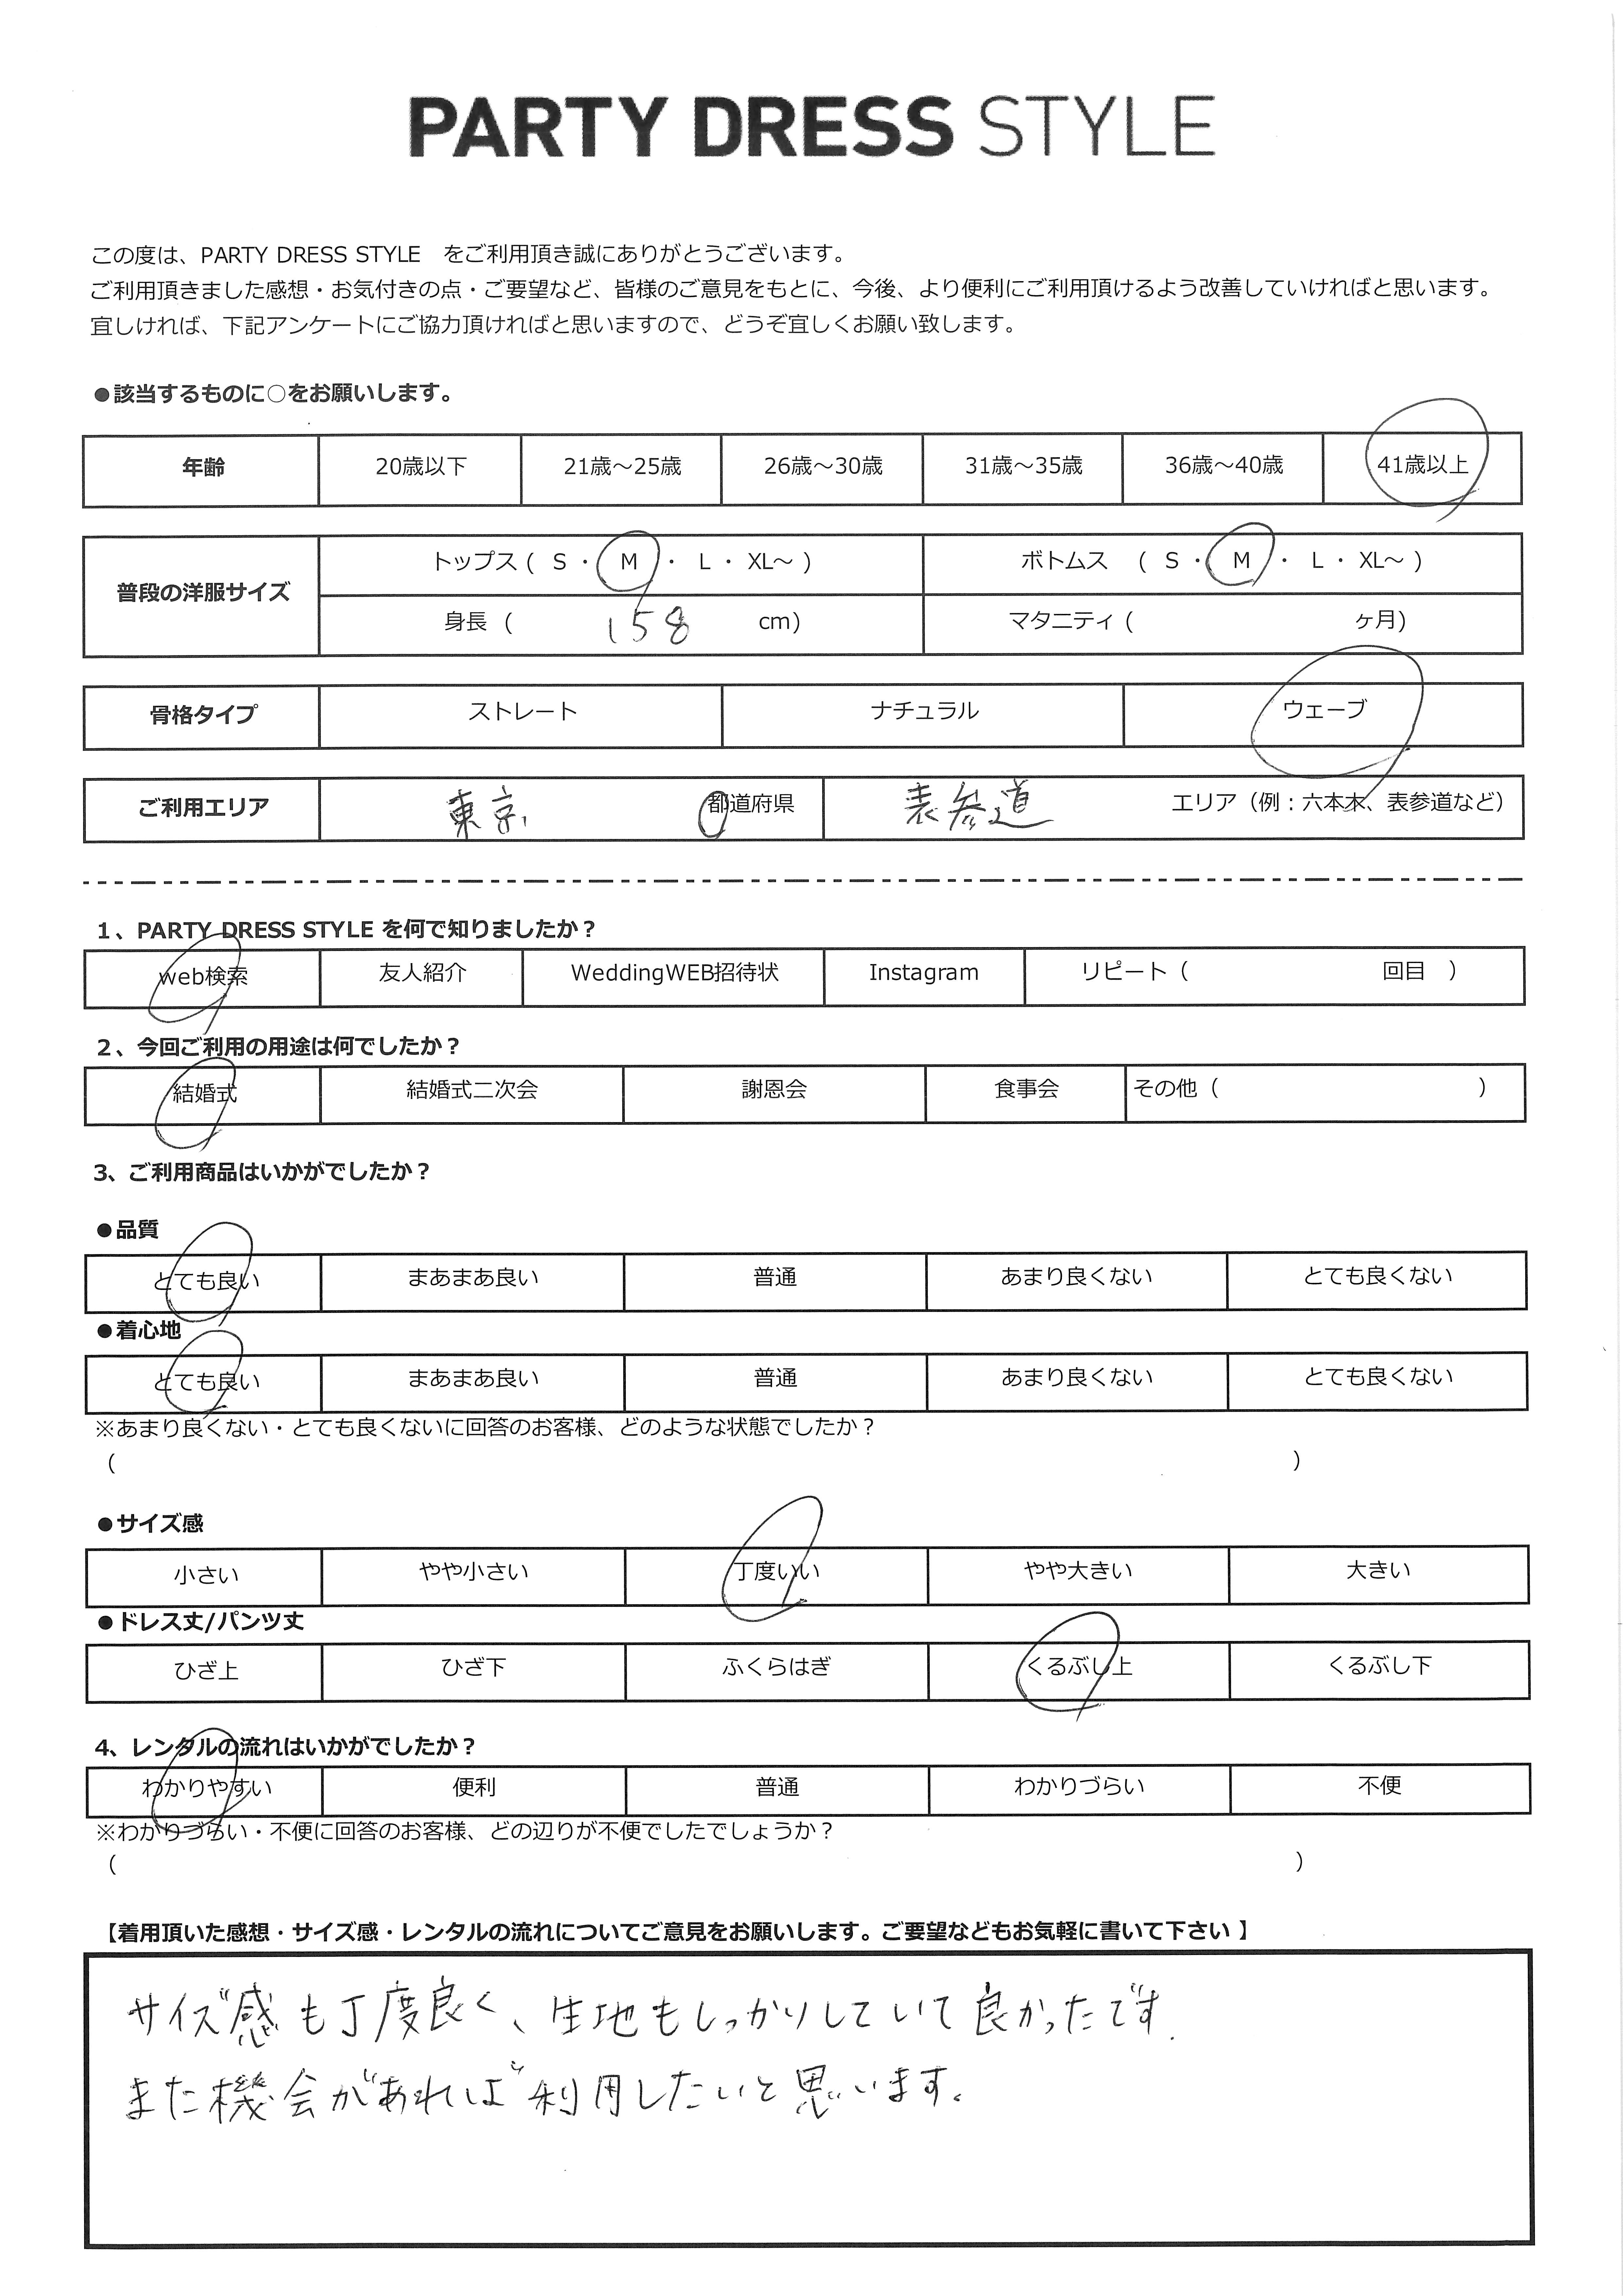 PARTY DRESS STYLE
この度は、PARTY DRESS STYLE　をご利用頂き誠にありがとうございます。
ご利用頂きました感想・お気付きの点・ご要望など、皆様のご意見をもとに、今後、より便利にご利用頂けるよう改善していければと思います。
宜しければ、下記アンケートにご協力頂ければと思いますので、どうぞ宜しくお願い致します。
●該当するものに○をお願いします。
年齢 20歳以下 21歳～25歳 26歳～30歳 31歳～35歳 36歳～40歳 41歳以上
普段の洋服サイズ トップス ( S ・ M ・ L ・ XL～ ) ボトムス ( S ・ M ・ L ・ XL～ )
身長 ( 158 cm) マタニティ ( ヶ月)
骨格タイプ ストレート ナチュラル ウェーブ
ご利用エリア 東京 都道府県 表参道 エリア（例：六本木、表参道など）
1、PARTY DRESS STYLE を何で知りましたか？
web検索 友人紹介 WeddingWEB招待状 Instagram リピート（ 回目 ）
2、今回ご利用の用途は何でしたか？
結婚式 結婚式二次会 謝恩会 食事会 その他（ ）
3、ご利用商品はいかがでしたか？
●品質
とても良い まあまあ良い 普通 あまり良くない とても良くない
●着心地
とても良い まあまあ良い 普通 あまり良くない とても良くない
※あまり良くない・とても良くないに回答のお客様、どのような状態でしたか？
（ ）
●サイズ感
小さい やや小さい 丁度いい やや大きい 大きい
●ドレス丈/パンツ丈
ひざ上 ひざ下 ふくらはぎ くるぶし上 くるぶし下
4、レンタルの流れはいかがでしたか？
わかりやすい 便利 普通 わかりづらい 不便
※わかりづらい・不便に回答のお客様、どの辺りが不便でしたでしょうか？
（ ）
【着用頂いた感想・サイズ感・レンタルの流れについてご意見をお願いします。ご要望などもお気軽に書いて下さい 】
サイズ感も丁度良く、生地もしっかりしていて良かったです.
また機会があれば利用したいと思います。